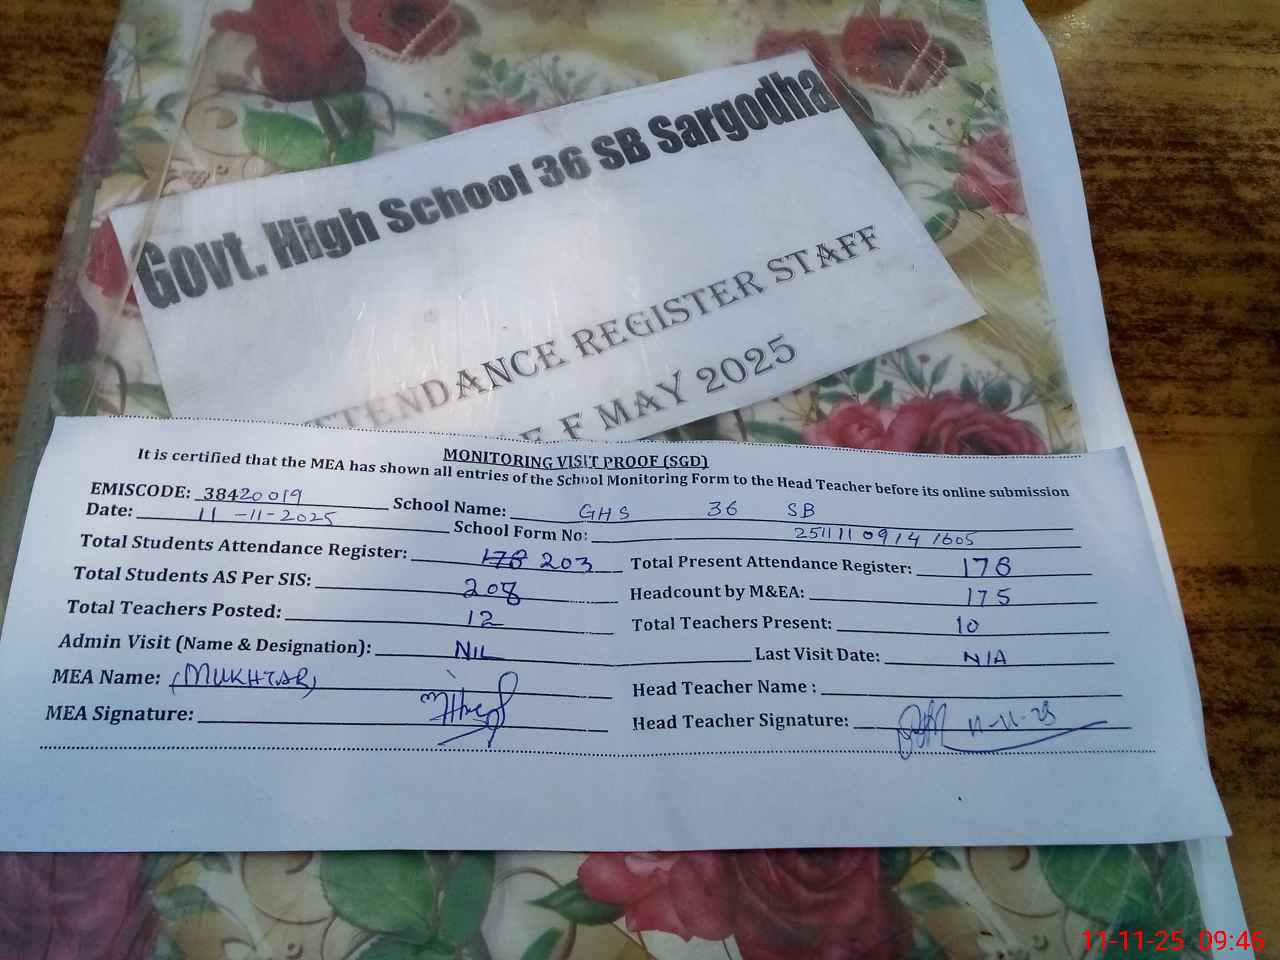 Govt. High School 36 SB Sargodha
TTENDANCE REGISTER STAFF
F MAY 2025
MONITORING VISIT PROOF (SGD)
It is certified that the MEA has shown all entries of the School Monitoring Form to the Head Teacher before its online submission
EMISCODE: 38420019 School Name: GHS 36 SB
Date: 11-11-2025 School Form No: 25111109141605
Total Students Attendance Register: 178 203 Total Present Attendance Register: 178
Total Students AS Per SIS: 208 Headcount by M&EA: 175
Total Teachers Posted: 12 Total Teachers Present: 10
Admin Visit (Name & Designation): NIL Last Visit Date: N/A
MEA Name: (MUKHTAR) Head Teacher Name :
MEA Signature: Head Teacher Signature: 11-11-25
11-11-25 09:46